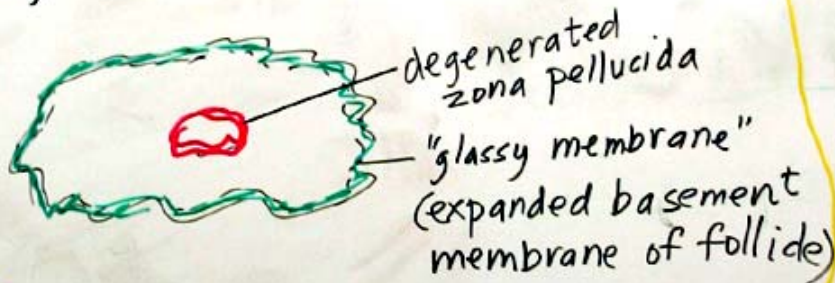 degenerated
zona pellucida
"glassy membrane"
(expanded basement
membrane of follicle)